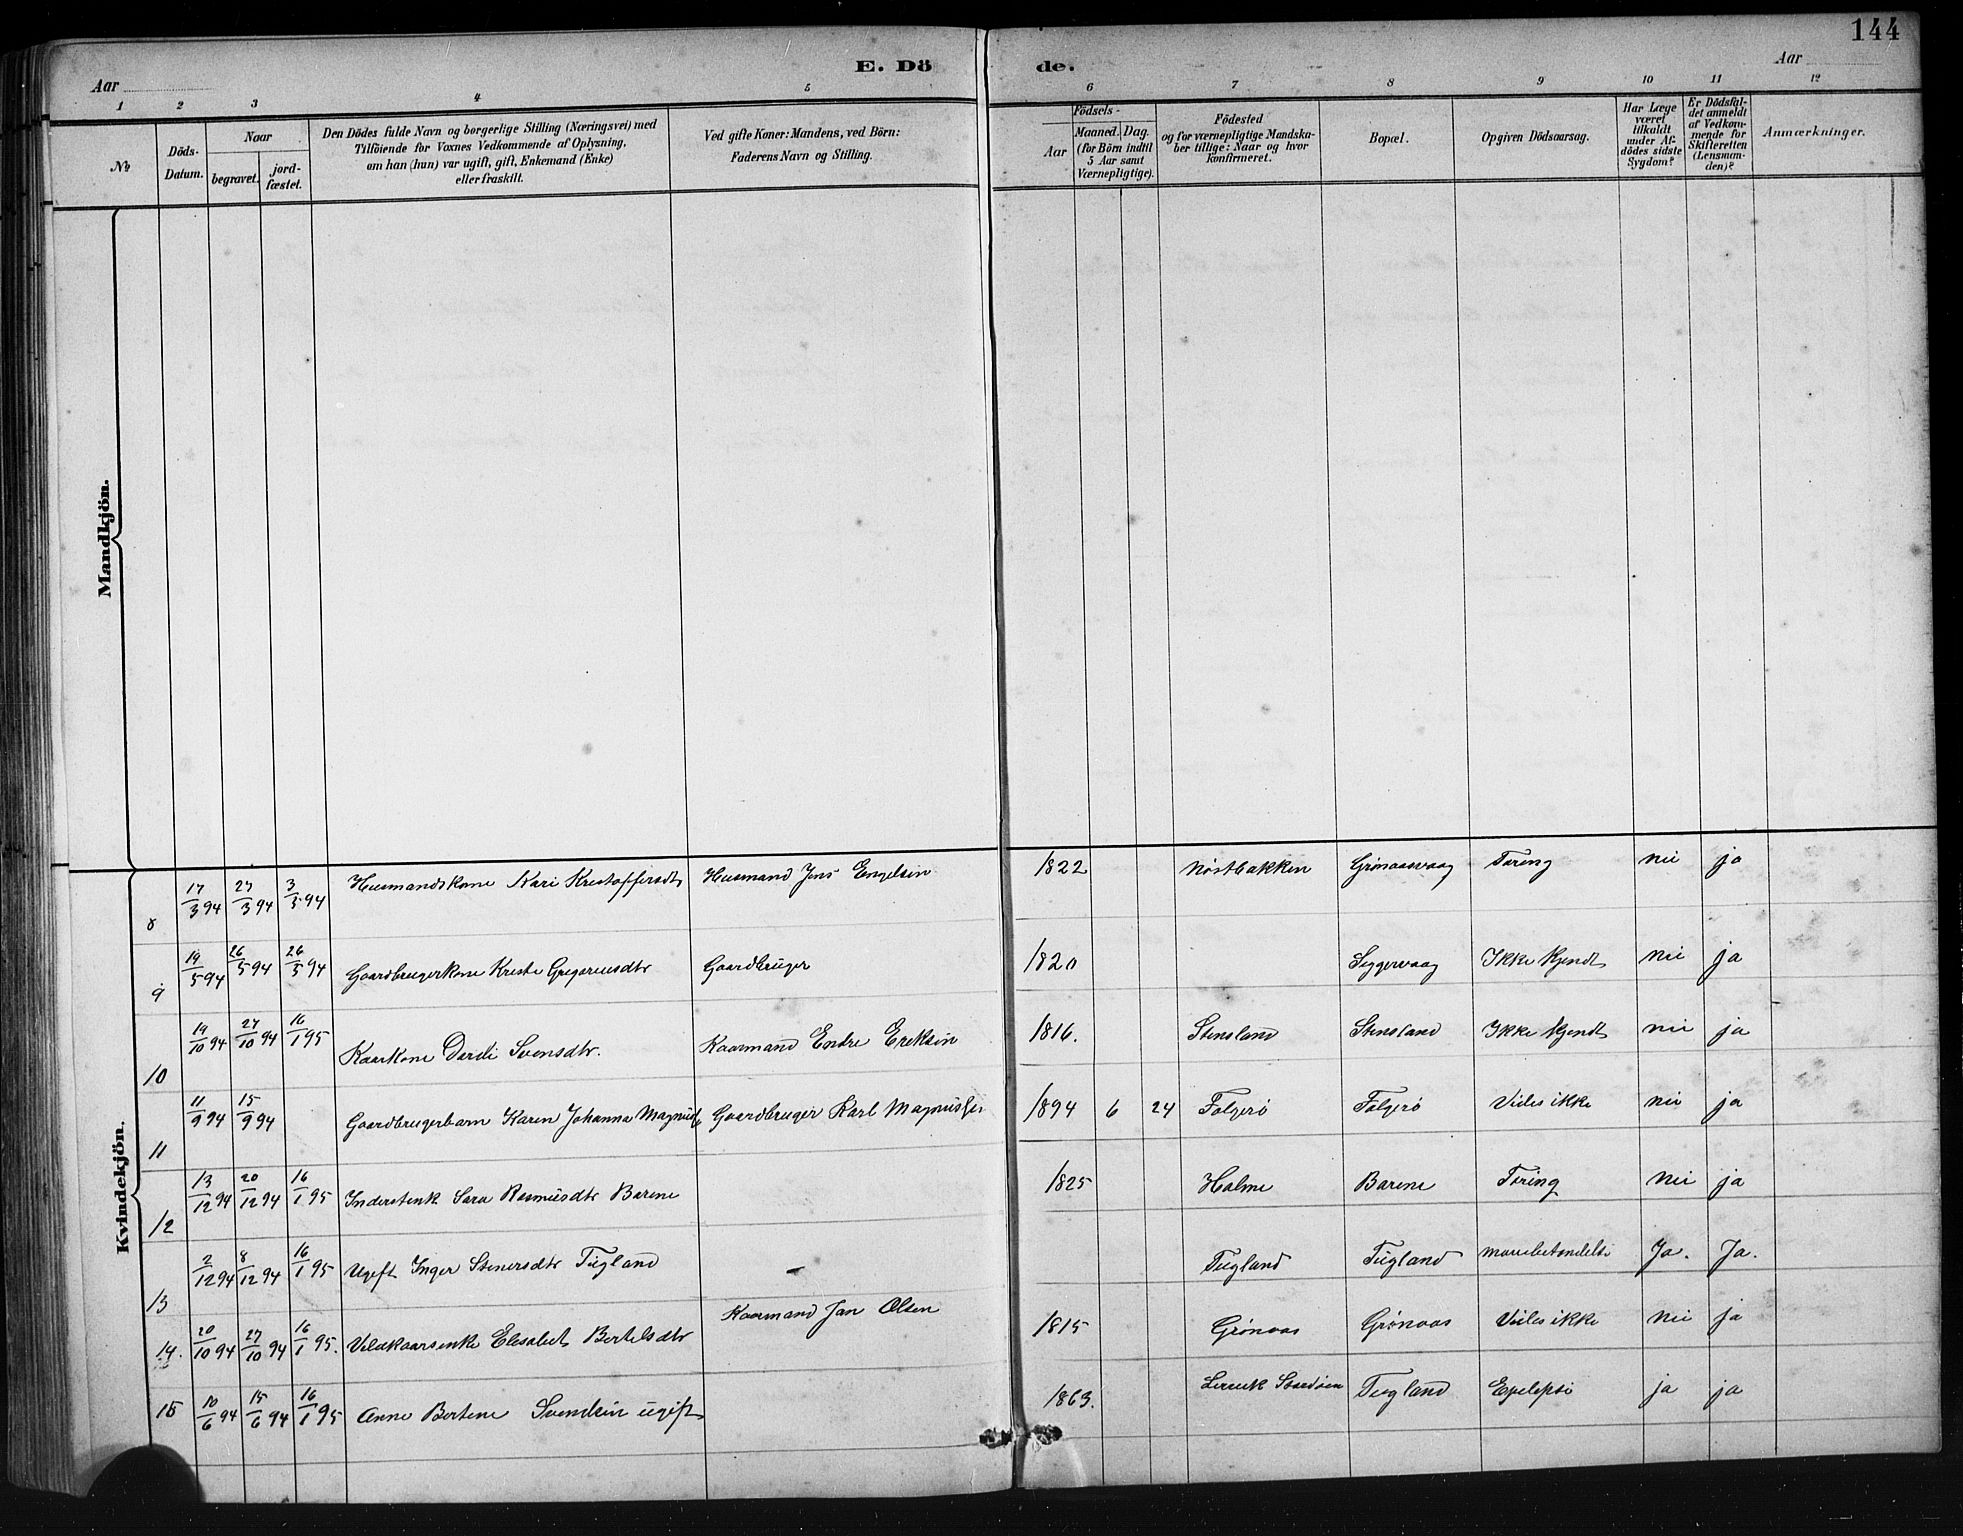 144
E. Dö de.
Aar
Aar
1 2 3 4 5 6 7 8 9 10 11 12
No
Döds-Datum.
Naar
begravet.
jord-fæstet.
Den Dödes fulde Navn og borgerlige Stilling (Næringsvei) med
Tilföiende for Voxnes Vedkommende af Oplysning,
om han (hun) var ugift, gift, Enkemand (Enke)
eller fraskilt.
Ved gifte Koner: Mandens, ved Börn:
Faderens Navn og Stilling.
Födsels-
Aar
Maaned. Dag.
(for Börn indtil
5 Aar samt
Værnepligtige).
Födested
og for værnepligtige Mandska-
ber tillige: Naar og hvor
konfirmeret.
Bopæl.
Opgiven Dödsaarsag.
Har Læge
været
tilkaldt
under Af-
dödes sidste
Sygdom?
Er Dödsfal-
det anmeldt
af Vedkom-
mende for
Skifteretten
(Lensman-
den)?
Anmærkninger.
Mandkjön.
Kvindekjön.
8 17/3 94 27/3 94 3/5 94 Husmandskone Kari Kristoffersdt Husmand Jens Engelsen 1822 Nøstbakken Grønaasvaag Tæring nei ja
9 19/5 94 26/5 94 26/5 94 Gaardbrugerkone Kristi Gregoriusdtr Gaardbruger 1820 Seggervaag Ikke Kjendt nei ja
10 19/10 94 27/10 94 16/1 95 Kaarkone Dordi Svensdtr. Kaarmand Endre Eriksen 1816. Stensland Stensland Ikke Kjendt nei ja
11 11/9 94 15/9 94 Gaardbrugerbarn Karen Johanna Magnusd Gaardbruger Karl Magnussen 1894 6 24 Folgerø Folgerø Vides ikke nei ja
12 13/12 94 20/12 94 16/1 95 Inderstenk Sara Rasmusdtr Barene 1825 Holme Barene Tæring nei ja
13 2/12 94 8/12 94 16/1 95 Ugift Inger Stenersdtr Tugland – Tugland Tugland mavebetændelse Ja. Ja.
14. 20/10 94 27/10 94 16/1 95. Vilkaarsenke Elisabet Bertelsdtr Kaarmand Jan Olsen 1815 Grønaas Grønaas Vides ikke nei ja
15 10/6 94 15/6 94 16/1 95 Anne Bertine Svendsen ugift 1863. Lervik Stordøen Tugland Epelepsi ja ja